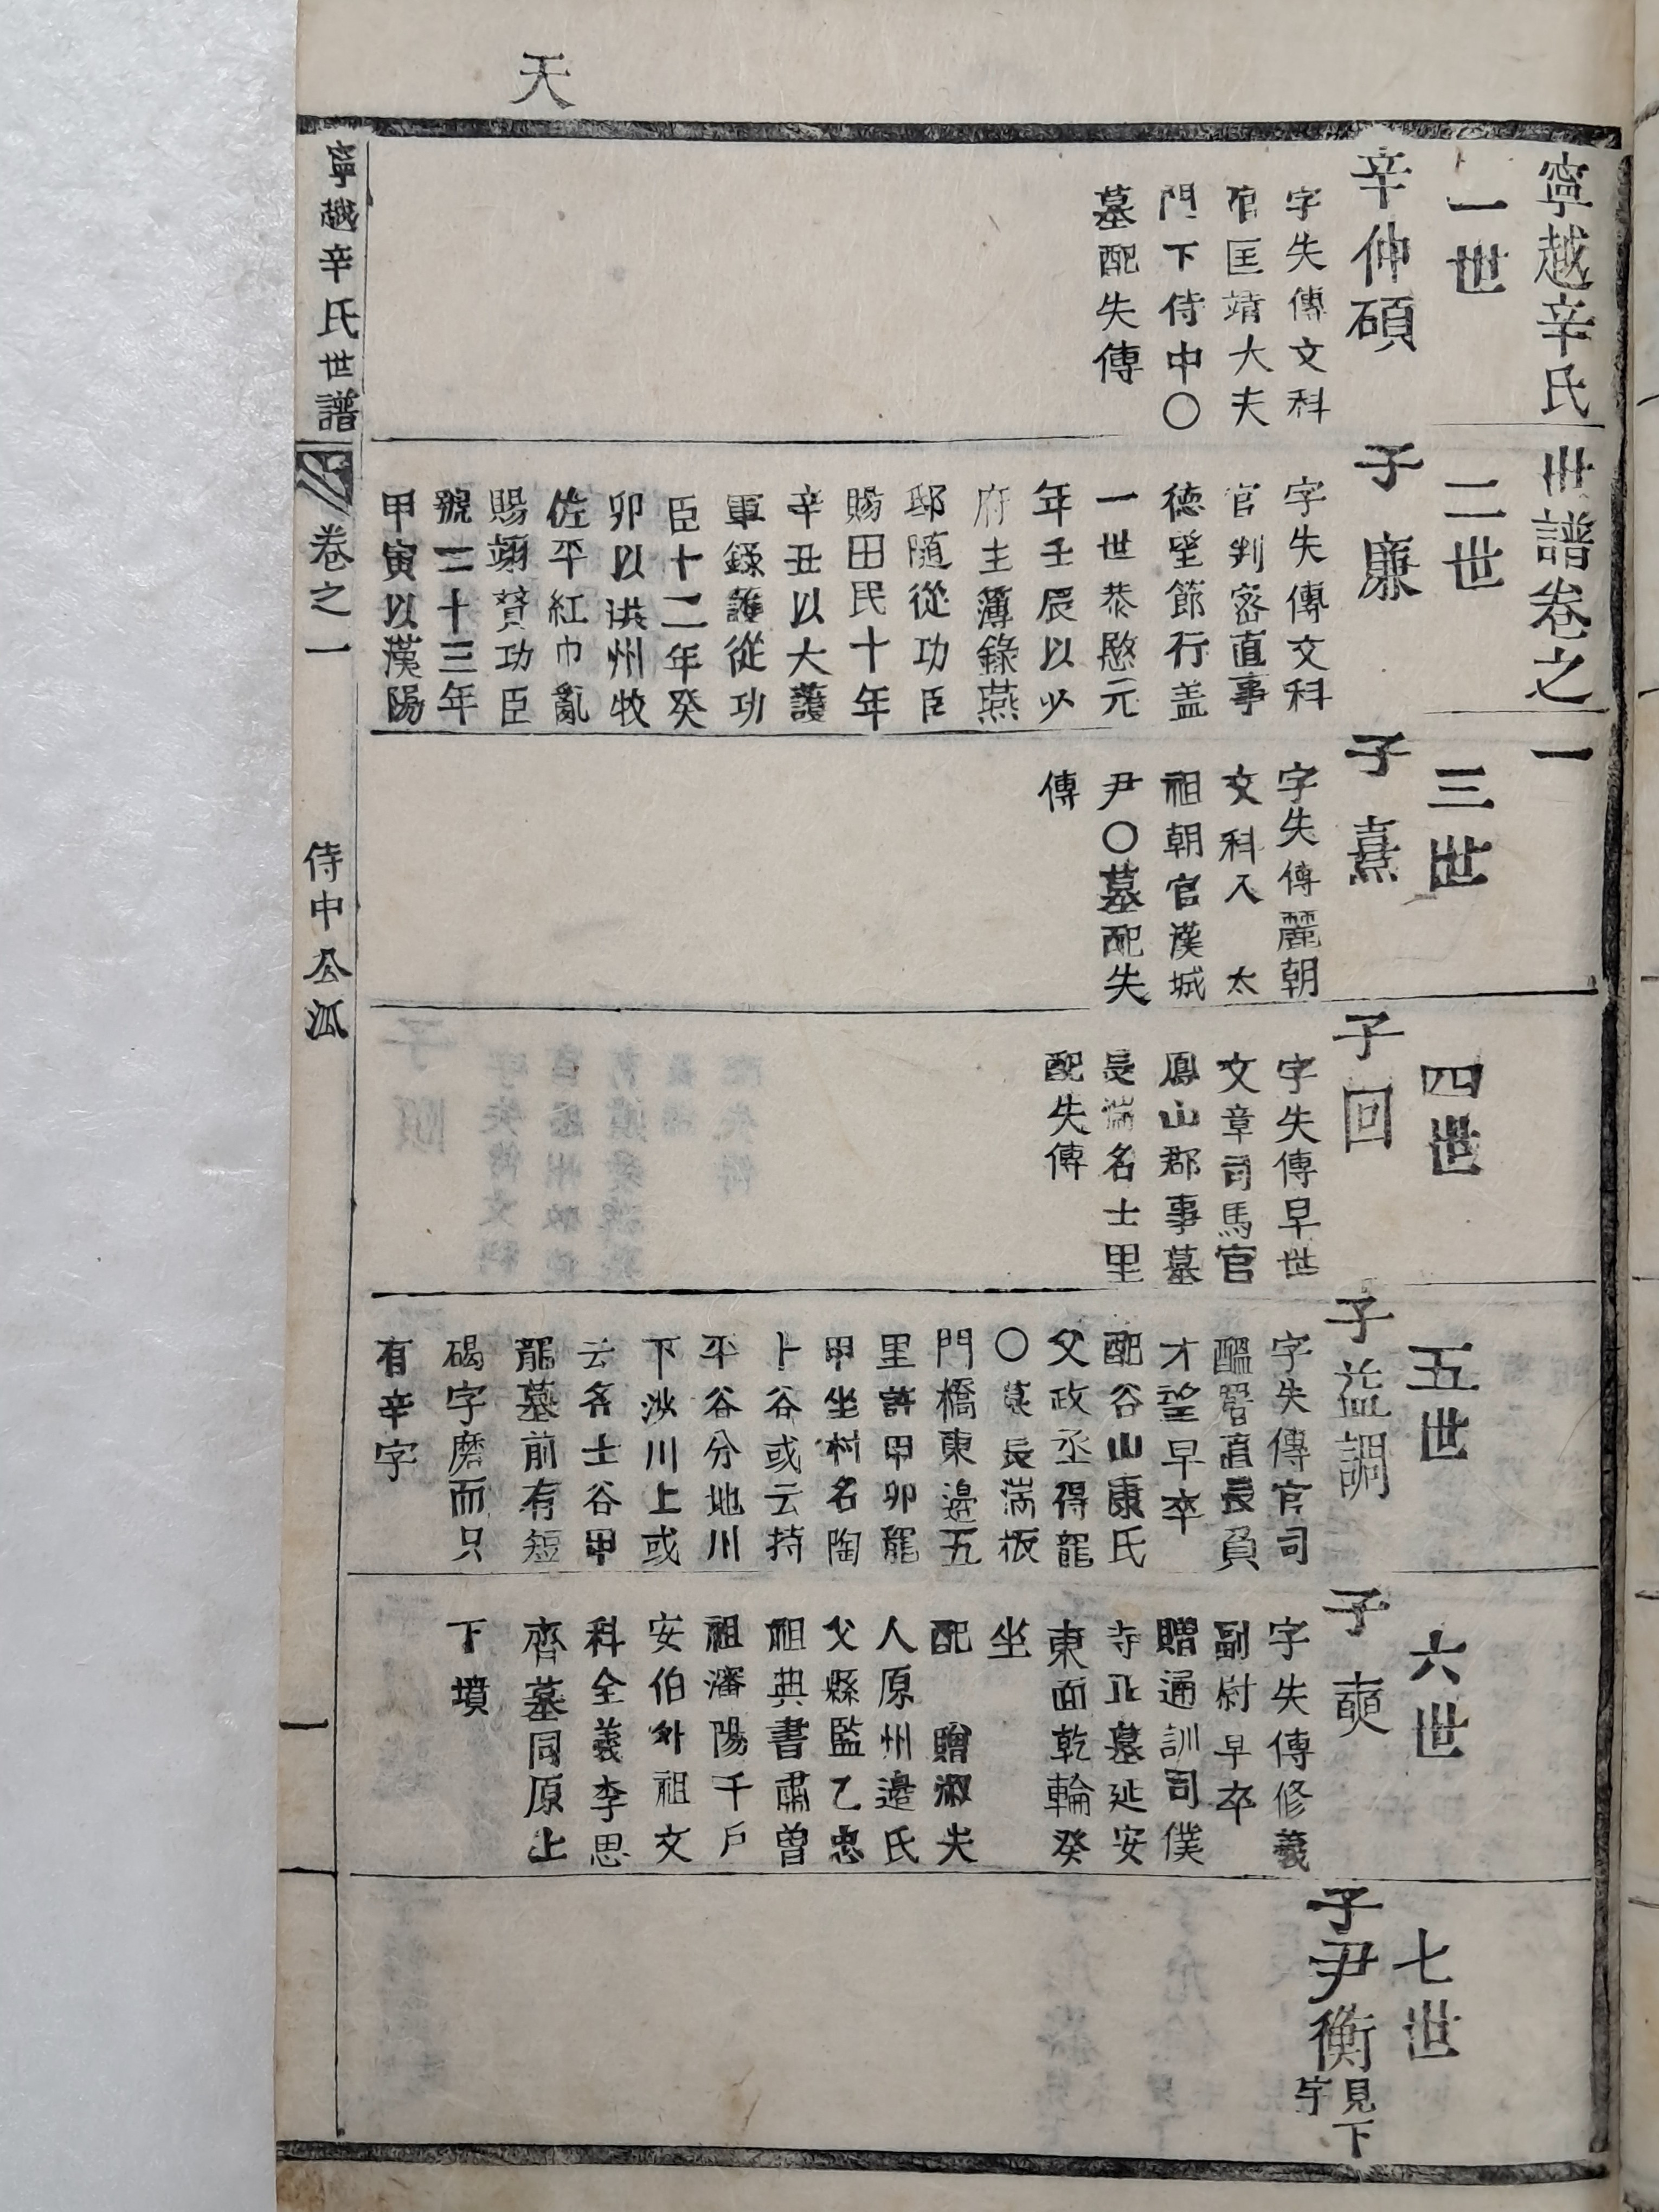 天
寧越辛氏世譜卷之一
一世
辛仲碩
字失傳文科
官匡靖大夫
門下侍中〇
墓配失傳
二世
子 廉
字失傳文科
官判密直事
德望節行盖
一世恭愍元
年壬辰以少
府主簿錄燕
邸隨從功臣
賜田民十年
辛丑以大護
軍錄護從功
臣十二年癸
卯以洪州牧
佐平紅巾亂
賜翊贊功臣
號二十三年
甲寅以漢陽
三世
子 熹
字失傳麗朝
文科入 太
祖朝官漢城
尹〇墓配失
傳
四世
子 回
字失傳早世
文章司馬官
鳳山郡事墓
長湍名士里
配失傳
五世
子 益調
字失傳官司
醞署直長負
才望早卒
配谷山康氏
父政丞得龍
〇墓長湍板
門橋東邊五
里許甲卯龍
甲坐村名陶
卜谷或云持
平谷分地川
下沙川上或
云各士谷甲
龍墓前有短
碣字磨而只
有辛字
六世
子 奭
字失傳修義
副尉早卒
贈通訓司僕
寺正墓延安
東面乾輪癸
坐
配 贈淑夫
人原州邊氏
父縣監乙忠
祖典書肅曾
祖瀋陽千戶
安伯外祖文
科全義李思
齊墓同原上
下墳
七世
子尹衡 見下宇
寧越辛氏世譜 卷之一 侍中公派 一